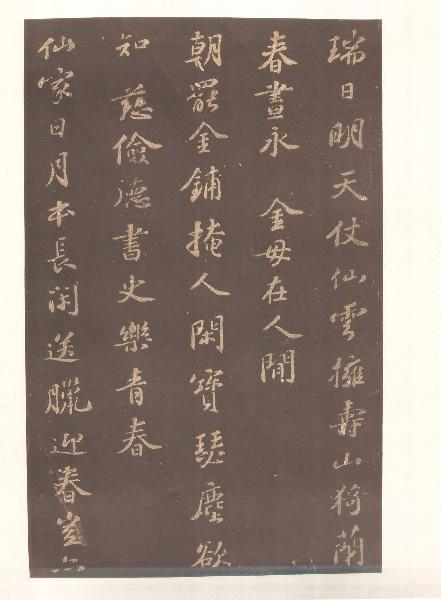 瑞日明天仗仙雲擁壽山猗蘭
春晝永金母在人間
朝罷金鋪掩人閑寶瑟塵欲
知慈儉德書史樂青春
仙家日月本長閑送臘迎春豈亦